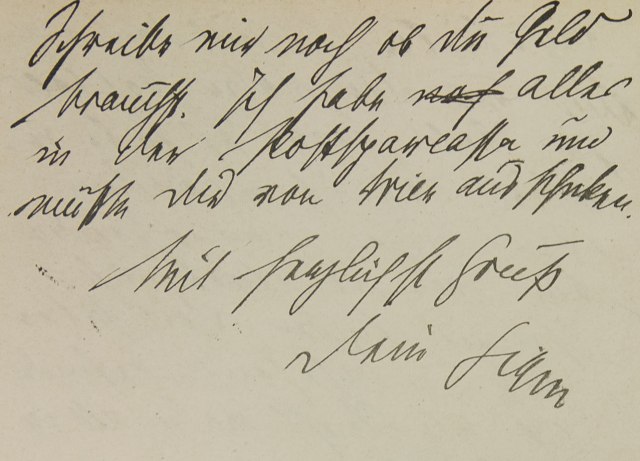 Schreibe mir noch ob du Geld
brauchst. Ich habe noch alles
in der Postsparcassa und
müßte dir von Wien aus schicken.
Mit herzlichst Gruß
dein Sigm